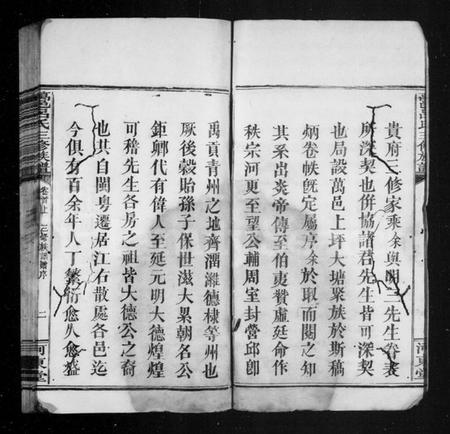 貴府三修家乘余與閣三先生眷表
所深契也併協諸君先生皆可深契
也局設萬邑上坪大塘聚族於斯稿
炳卷帙旣定屬序余於取而閱之知
其系出炎帝傳至伯夷贊虞廷命作
秩宗河東至望公輔周室封營邱卽
禹貢青州之地齊潤濰德棣等州也
厥後穀貽孫子保世滋大累朝名公
鉅卿代有偉人至延元明大德煌煌
可稽先生各房之祖皆大德公之裔
也其自閩粵遷居江右散處各邑迄
今俱有百餘年人丁繁衍愈久愈盛
萬邑呂氏三修族譜
卷首上
二
河東堂